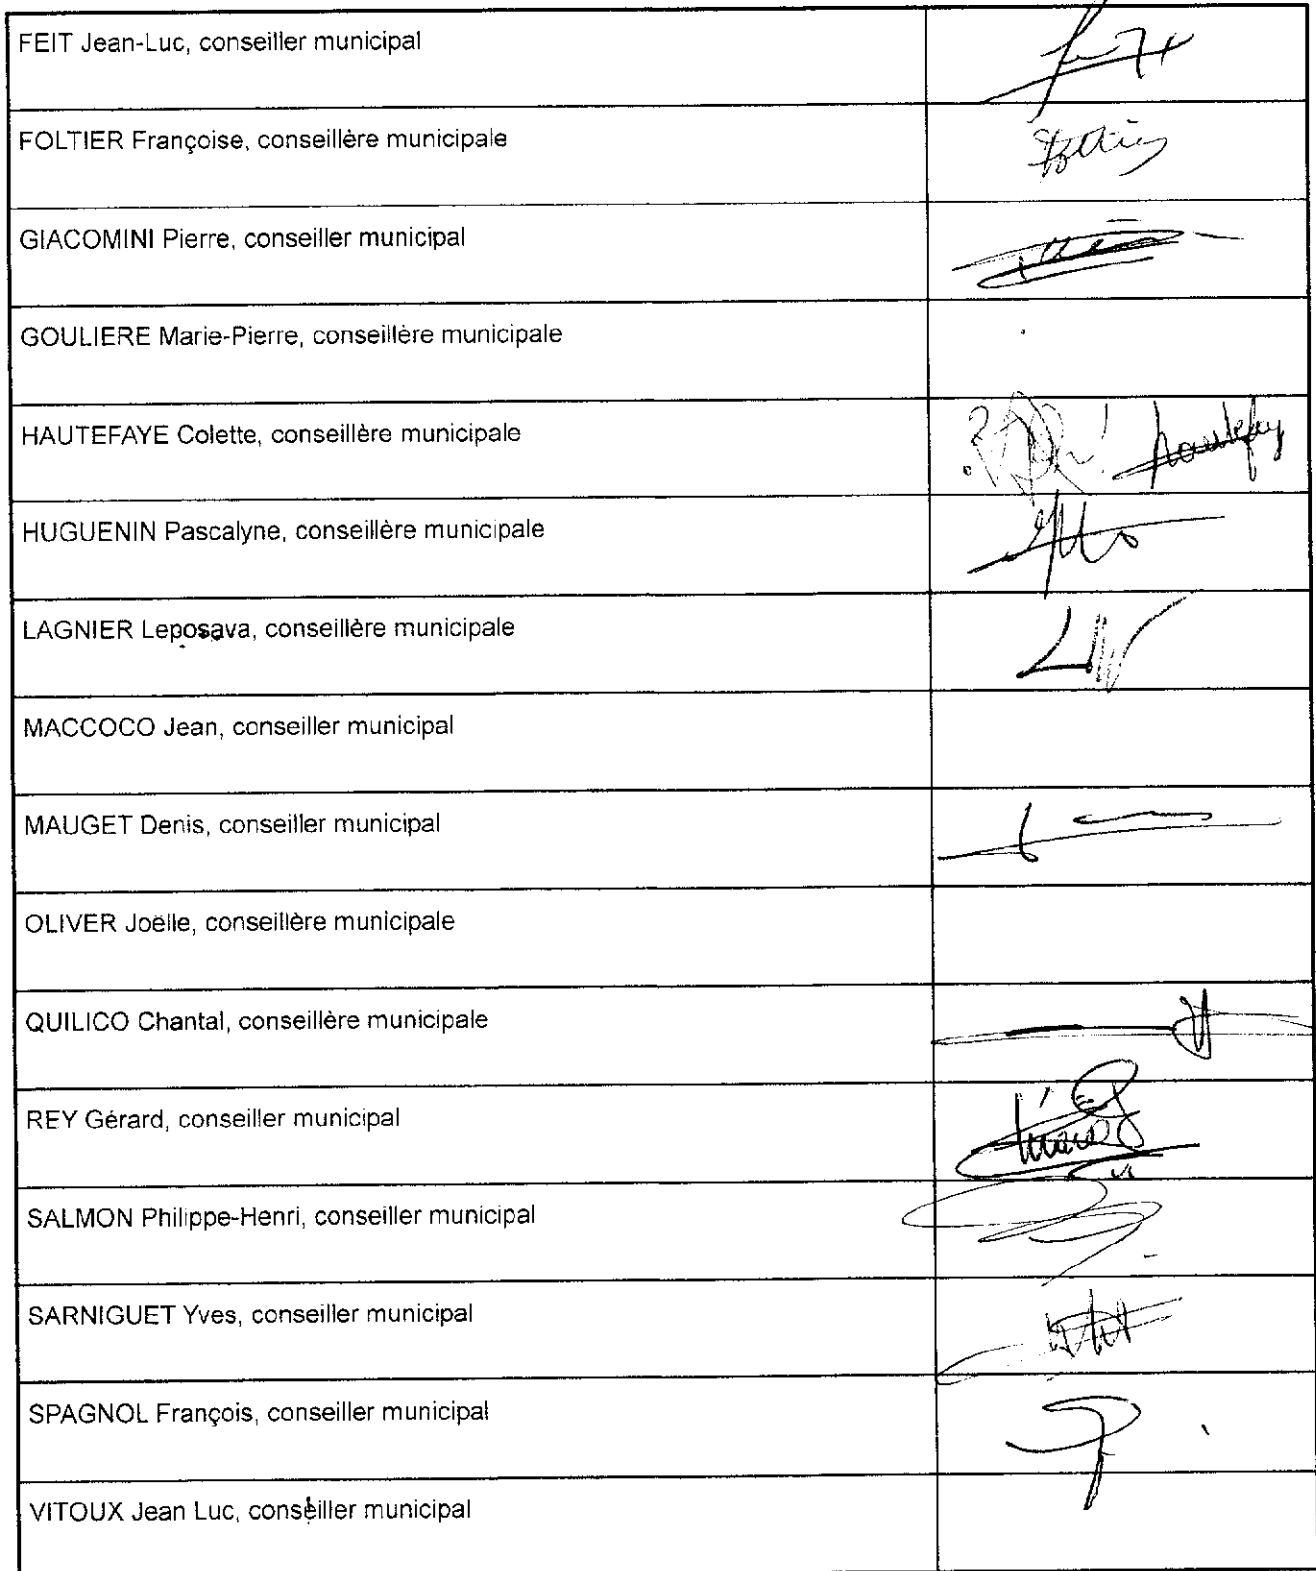 FEIT Jean-Luc, conseiller municipal
FOLTIER Françoise, conseillère municipale
GIACOMINI Pierre, conseiller municipal
GOULIERE Marie-Pierre, conseillère municipale
HAUTEFAYE Colette, conseillère municipale
HUGUENIN Pascalyne, conseillère municipale
LAGNIER Leposava, conseillère municipale
MACCOCO Jean, conseiller municipal
MAUGET Denis, conseiller municipal
OLIVER Joëlle, conseillère municipale
QUILICO Chantal, conseillère municipale
REY Gérard, conseiller municipal
SALMON Philippe-Henri, conseiller municipal
SARNIGUET Yves, conseiller municipal
SPAGNOL François, conseiller municipal
VITOUX Jean Luc, conseiller municipal